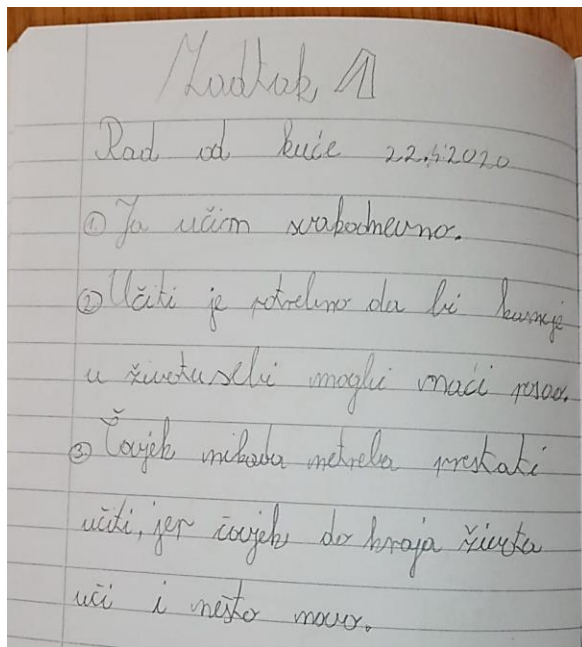 Zadtak 1
Rad od kuće 22.5.2020
① Ja učim svakodnevno.
② Učiti je potrebno da bi kasnije
u životu sebi mogli naći posao.
③ Čovjek nikada netreba prestati
učiti, jer čovjek do kraja života
uči i nešto novo.